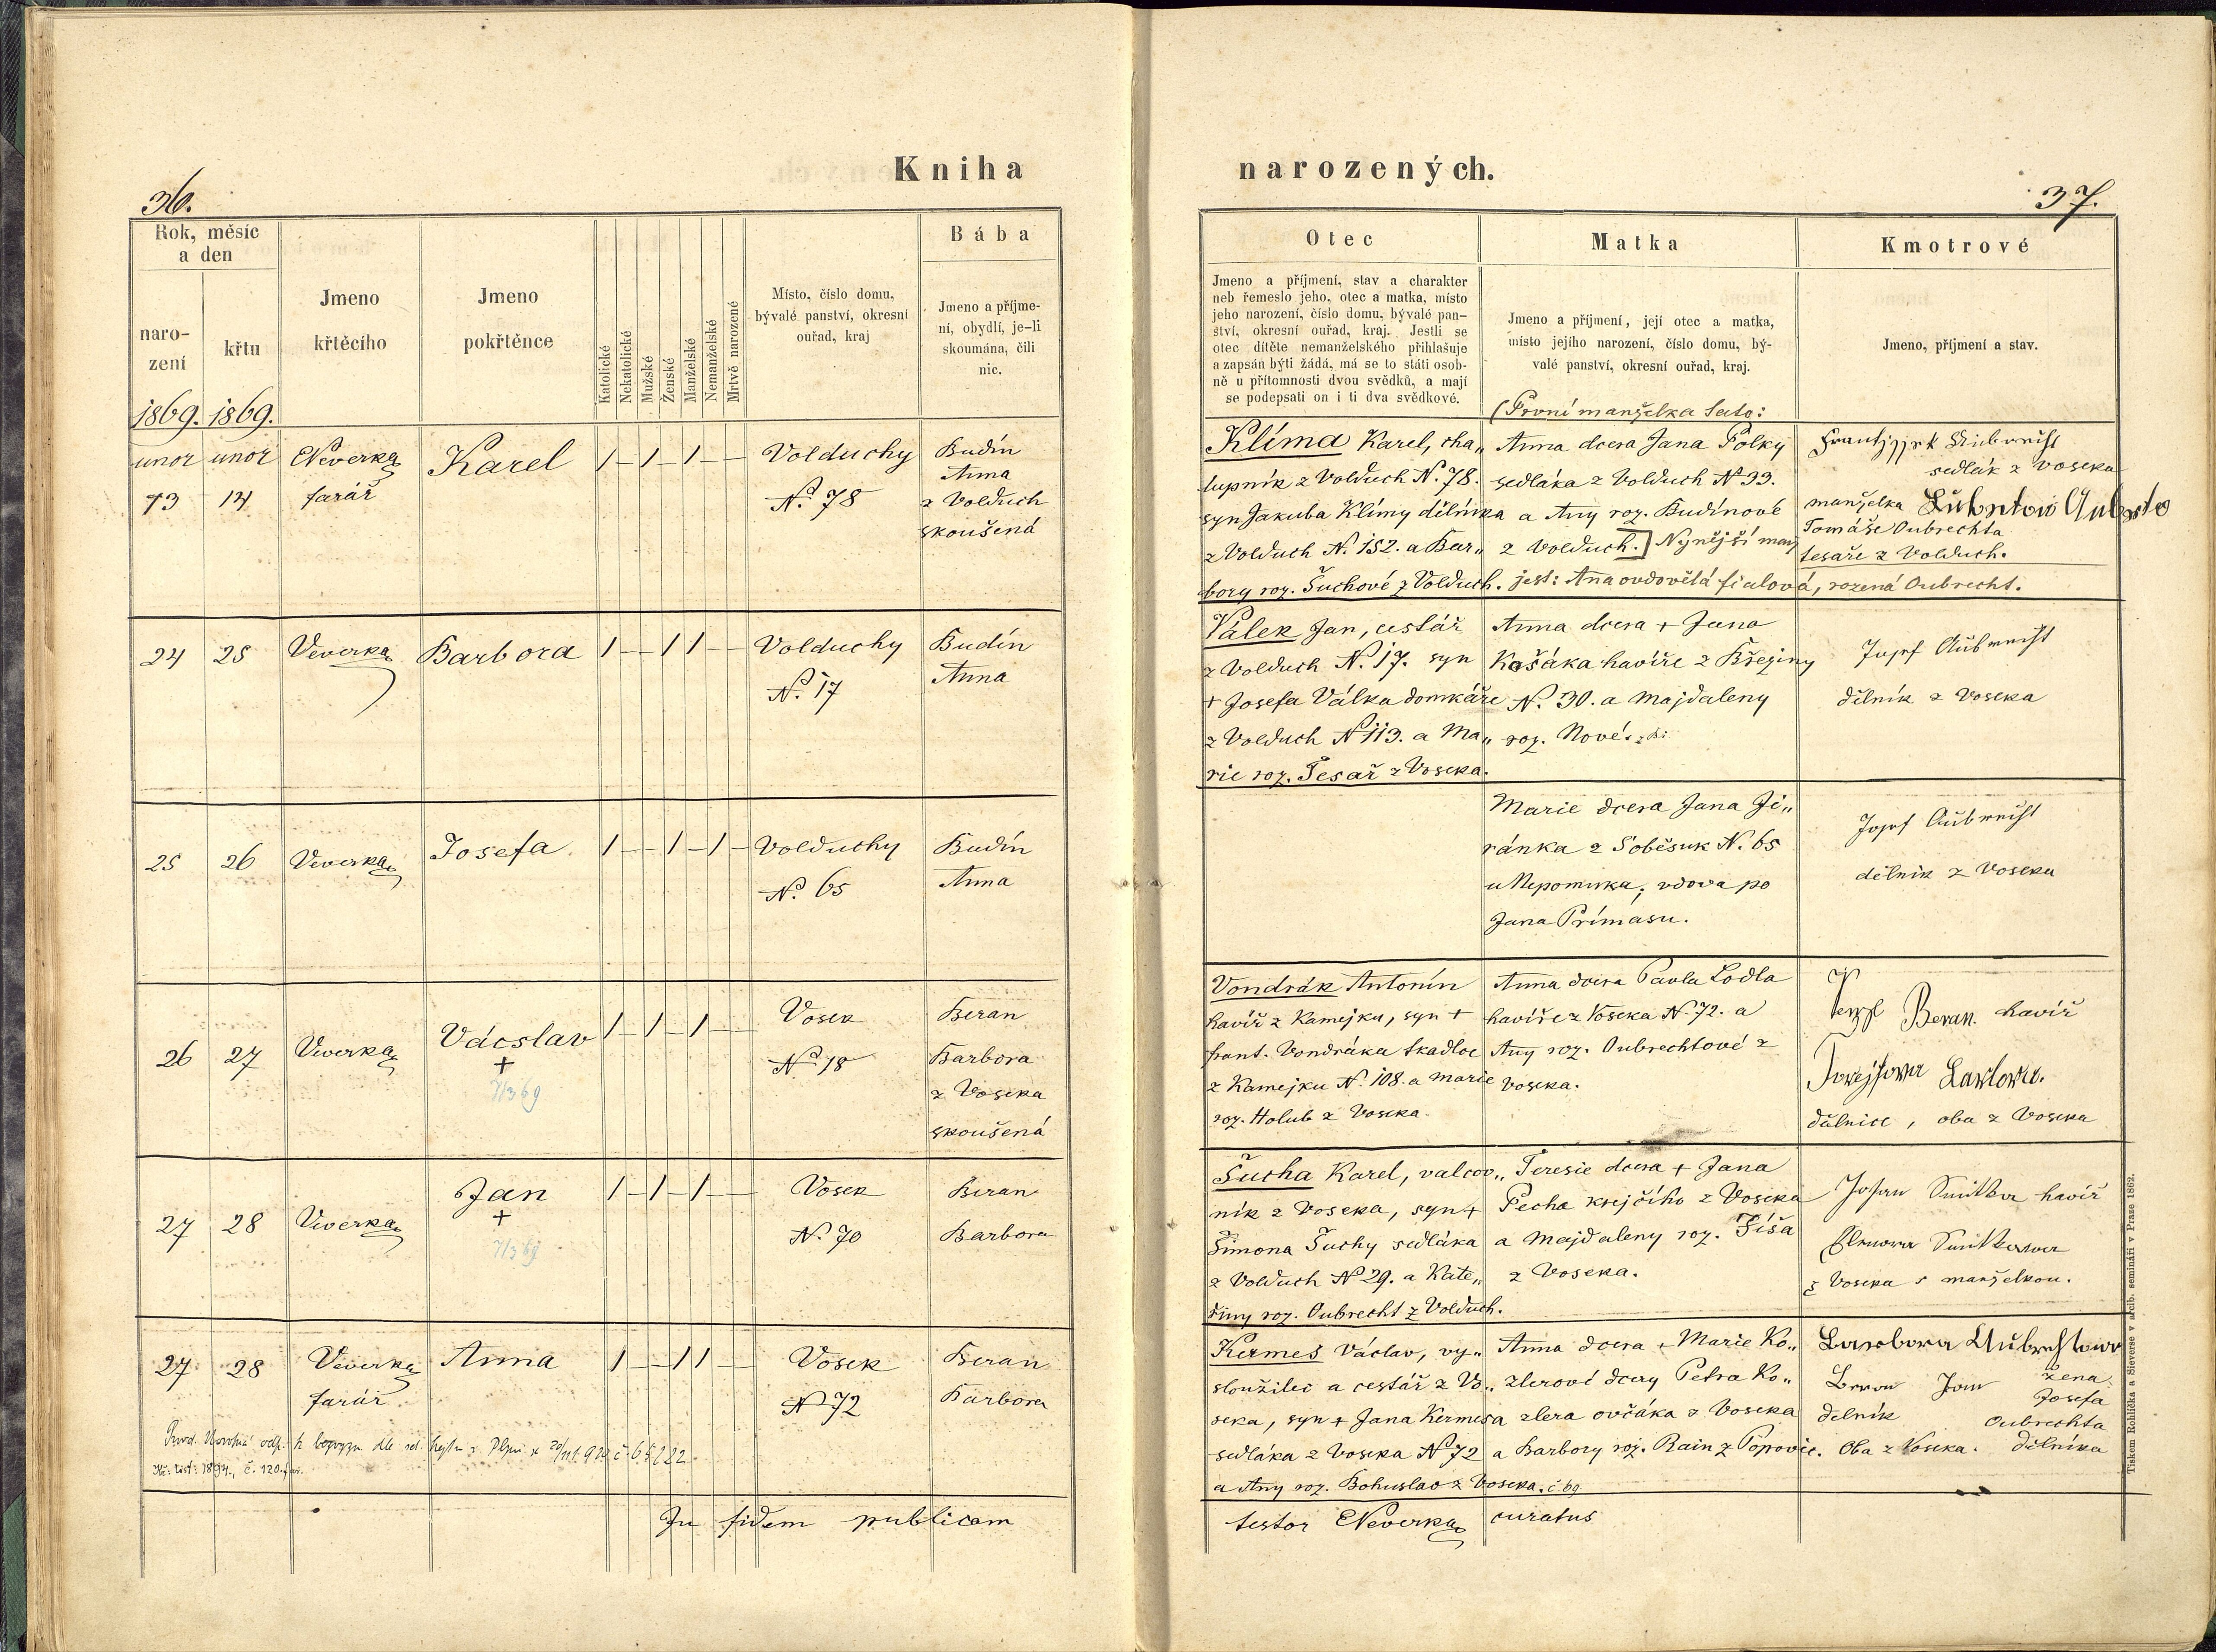 Kniha
36.
Rok, měsíc
a den
naro-
zení
křtu
Jmeno
křtěcího
Jmeno
pokřtěnce
Katolické
Nekatolické
Mužské
Ženské
Manželské
Nemanželské
Mrtvě narozené
Místo, číslo domu,
bývalé panství, okresní
ouřad, kraj
Bába
Jmeno a příjme-
ní, obydlí, je-li
skoumána, čili
nic.
1869. 1869.
unor unor Veverka Karel 1 – 1 – 1 – – Volduchy Budín
Anna
13 14 farář No. 78 z Volduch
skoušená
24 25 Veverka Barbora 1 – – 1 1 – – Volduchy Budín
No. 17 Anna
25 26 Veverka Josefa 1 – – 1 – 1 – Volduchy Budín
No. 65 Anna
26 27 Veverka Vácslav 1 – 1 – 1 – – Vosek Beran
+ No. 18 Barbora
7/3 69 z Voseka
skoušená
27 28 Veverka Jan 1 – 1 – 1 – – Vosek Beran
+ No. 70 Barbora
7/3 69
27 28 Veverka Anna 1 – – 1 1 – – Vosek Beran
farář No 72 Barbora
Kř: list: 1894., č. 120.
In fidem publicam
narozených.
37.
Otec
Jmeno a příjmení, stav a charakter
neb řemeslo jeho, otec a matka, místo
jeho narození, číslo domu, bývalé pan-
ství, okresní ouřad, kraj. Jestli se
otec dítěte nemanželského přihlašuje
a zapsán býti žádá, má se to státi osob-
ně u přítomnosti dvou svědků, a mají
se podepsati on i ti dva svědkové.
Matka
Jmeno a příjmení, její otec a matka,
místo jejího narození, číslo domu, bý-
valé panství, okresní ouřad, kraj.
(První manželka tato:
Kmotrové
Jmeno, příjmení a stav.
Klíma Karel, cha„
lupník z Volduch N. 78.
syn Jakuba Klímy dělníka
z Volduch N. 152. a Bar„
bory roz. Šuchové z Volduch.
Anna dcera Jana Polky
sedláka z Volduch No 33.
a Any roz. Budínové
z Volduch.] Nynější man
jest: Ana ovdovělá fialová, rozená Oubrecht.
sedlák z Voseka
manželka
Tomáše Oubrechta
tesaře z Volduch.
Válek Jan, cestář
z Volduch N. 17. syn
+ Josefa Válka domkáře
z Volduch N 113. a Ma„
rie roz. Tesař z Voseka.
Anna dcera + Jana
Košáka havíře z Březiny
No. 30. a Majdaleny
roz. Nové.
Josef Aubrecht
dělník z Voseka
Marie dcera Jana Ji„
ránka z Soběsuk N. 65
u Nepomuka, vdova po
Janu Prímasu.
Josef Aubrecht
dělník z Voseka
Vondrák Antonín
havíř z Kamejku, syn +
frant. Vondráka tkadlce
z Kamejku N. 108. a Marie
roz. Holub z Voseka.
Anna dcera Pavla Lodla
havíře z Voseka No. 72. a
Any roz. Oubrechtové z
Voseka.
Beran. havíř
dělnice, oba z Voseka
Šucha Karel, valcov„
ník z Voseka, syn +
Šimona Šuchy sedláka
z Volduch No 29. a Kate„
řiny roz. Oubrecht z Volduch.
Teresie dcera + Jana
Pecha krejčího z Voseka
a Majdaleny roz. Fiša
z Voseka.
havíř
z Voseka s manželkou.
Kermes Václav, vy„
sloužilec a cestář z Vo„
seka, syn + Jana Kermesa
sedláka z Voseka No 72
a Any roz. Bohuslav z Voseka. č. 69.
Anna dcera + Marie Ko„
zlerové dcery Petra Ko„
zlera ovčáka z Voseka
a Barbory roz. Rain z Popovic.
Barbora Aubrechtowa
žena
Josefa
dělník Oubrechta
Oba z Voseka. dělníka
testor Veverka curatus
Tiskem Rohlíčka a Sieverse v arcib. semináři v Praze 1862.